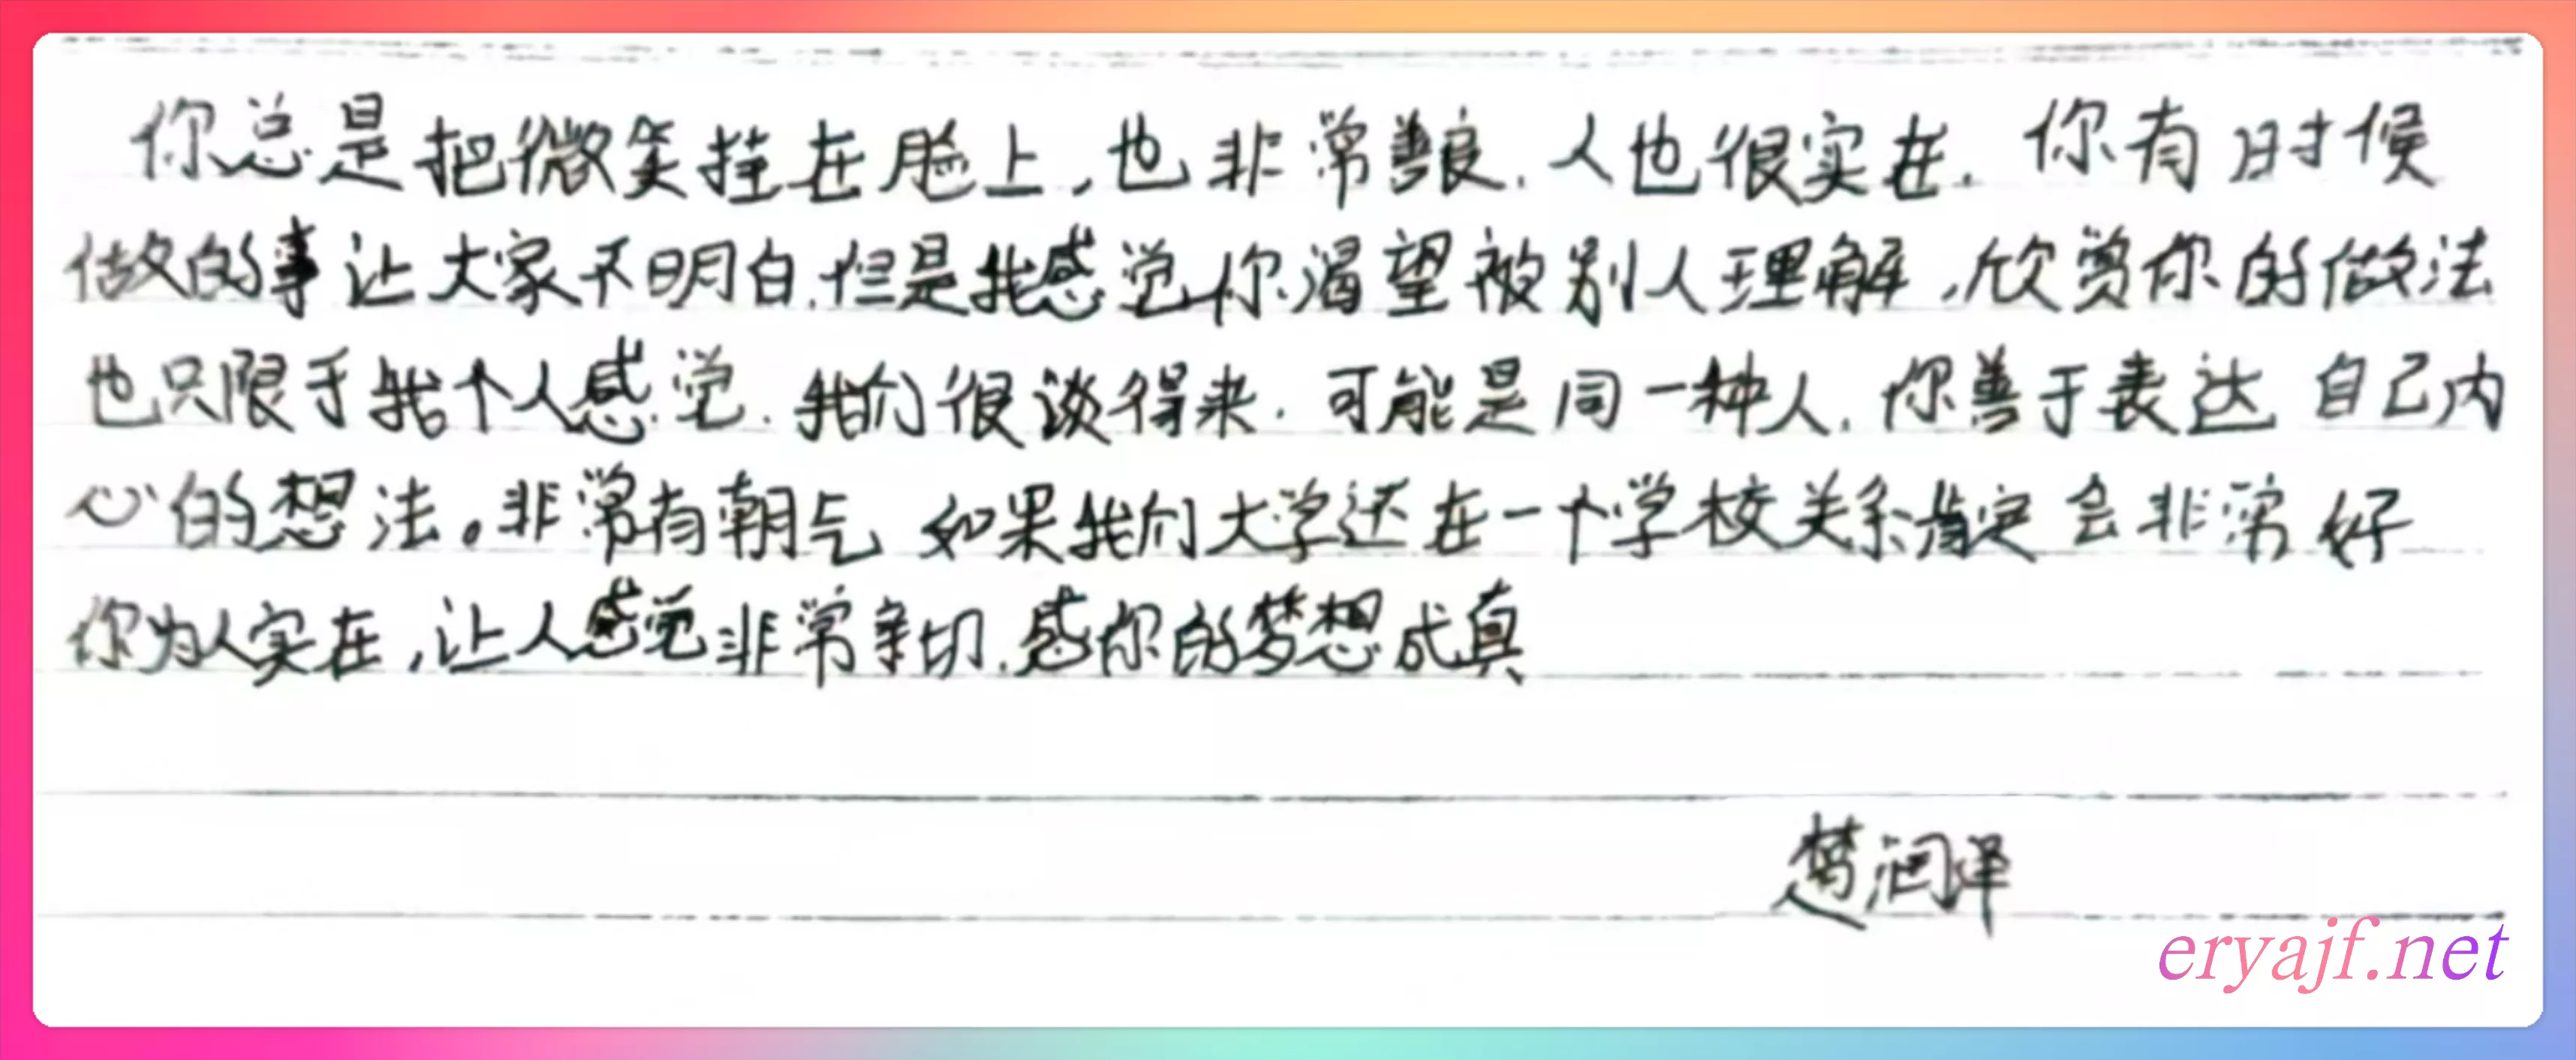 你总是把微笑挂在脸上，也非常善良.人也很实在.你有时候
做的事让大家不明白.但是我感觉你渴望被别人理解，欣赏你的做法
也只限于我个人感觉.我们很谈得来.可能是同一种人.你善于表达自己内
心的想法。非常有朝气 如果我们大学还在一个学校关系肯定会非常好
你为人实在，让人感觉非常亲切.愿你的梦想成真
楚润泽
eryajf.net